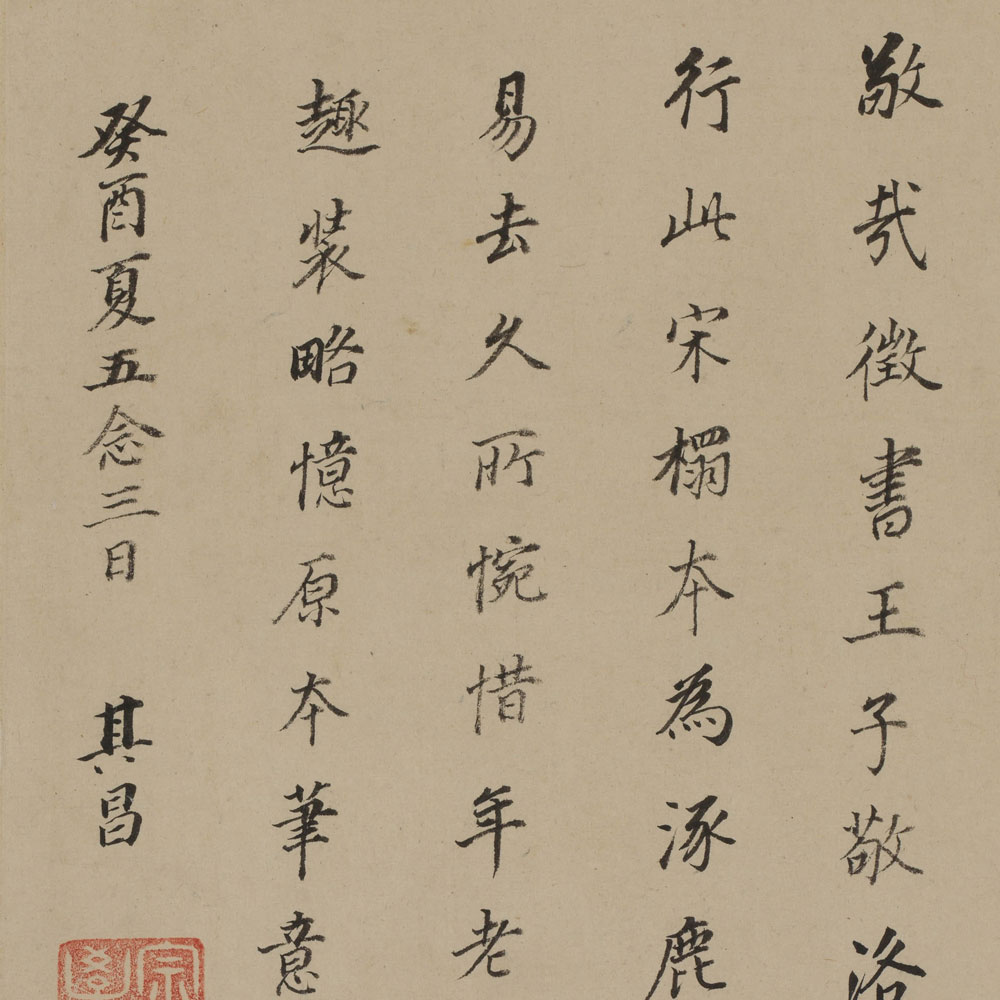 敬哉徵書王子敬洛
行此宋榻本為涿鹿
易去久所惋惜年老
趣装略憶原本筆意
癸酉夏五念三日 其昌
宗